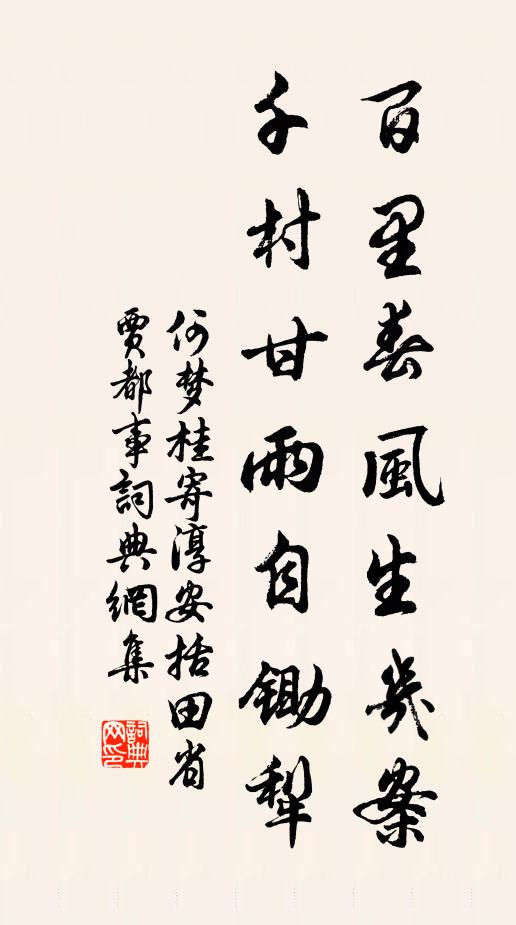 百里春風生几案
千村甘雨自鋤犁
何梦桂寄淳安括田省
賈都事詞典網集
詞典网印